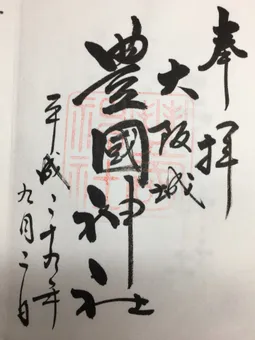 奉拝
大阪城
豊國神社
平成二十九年
九月二日